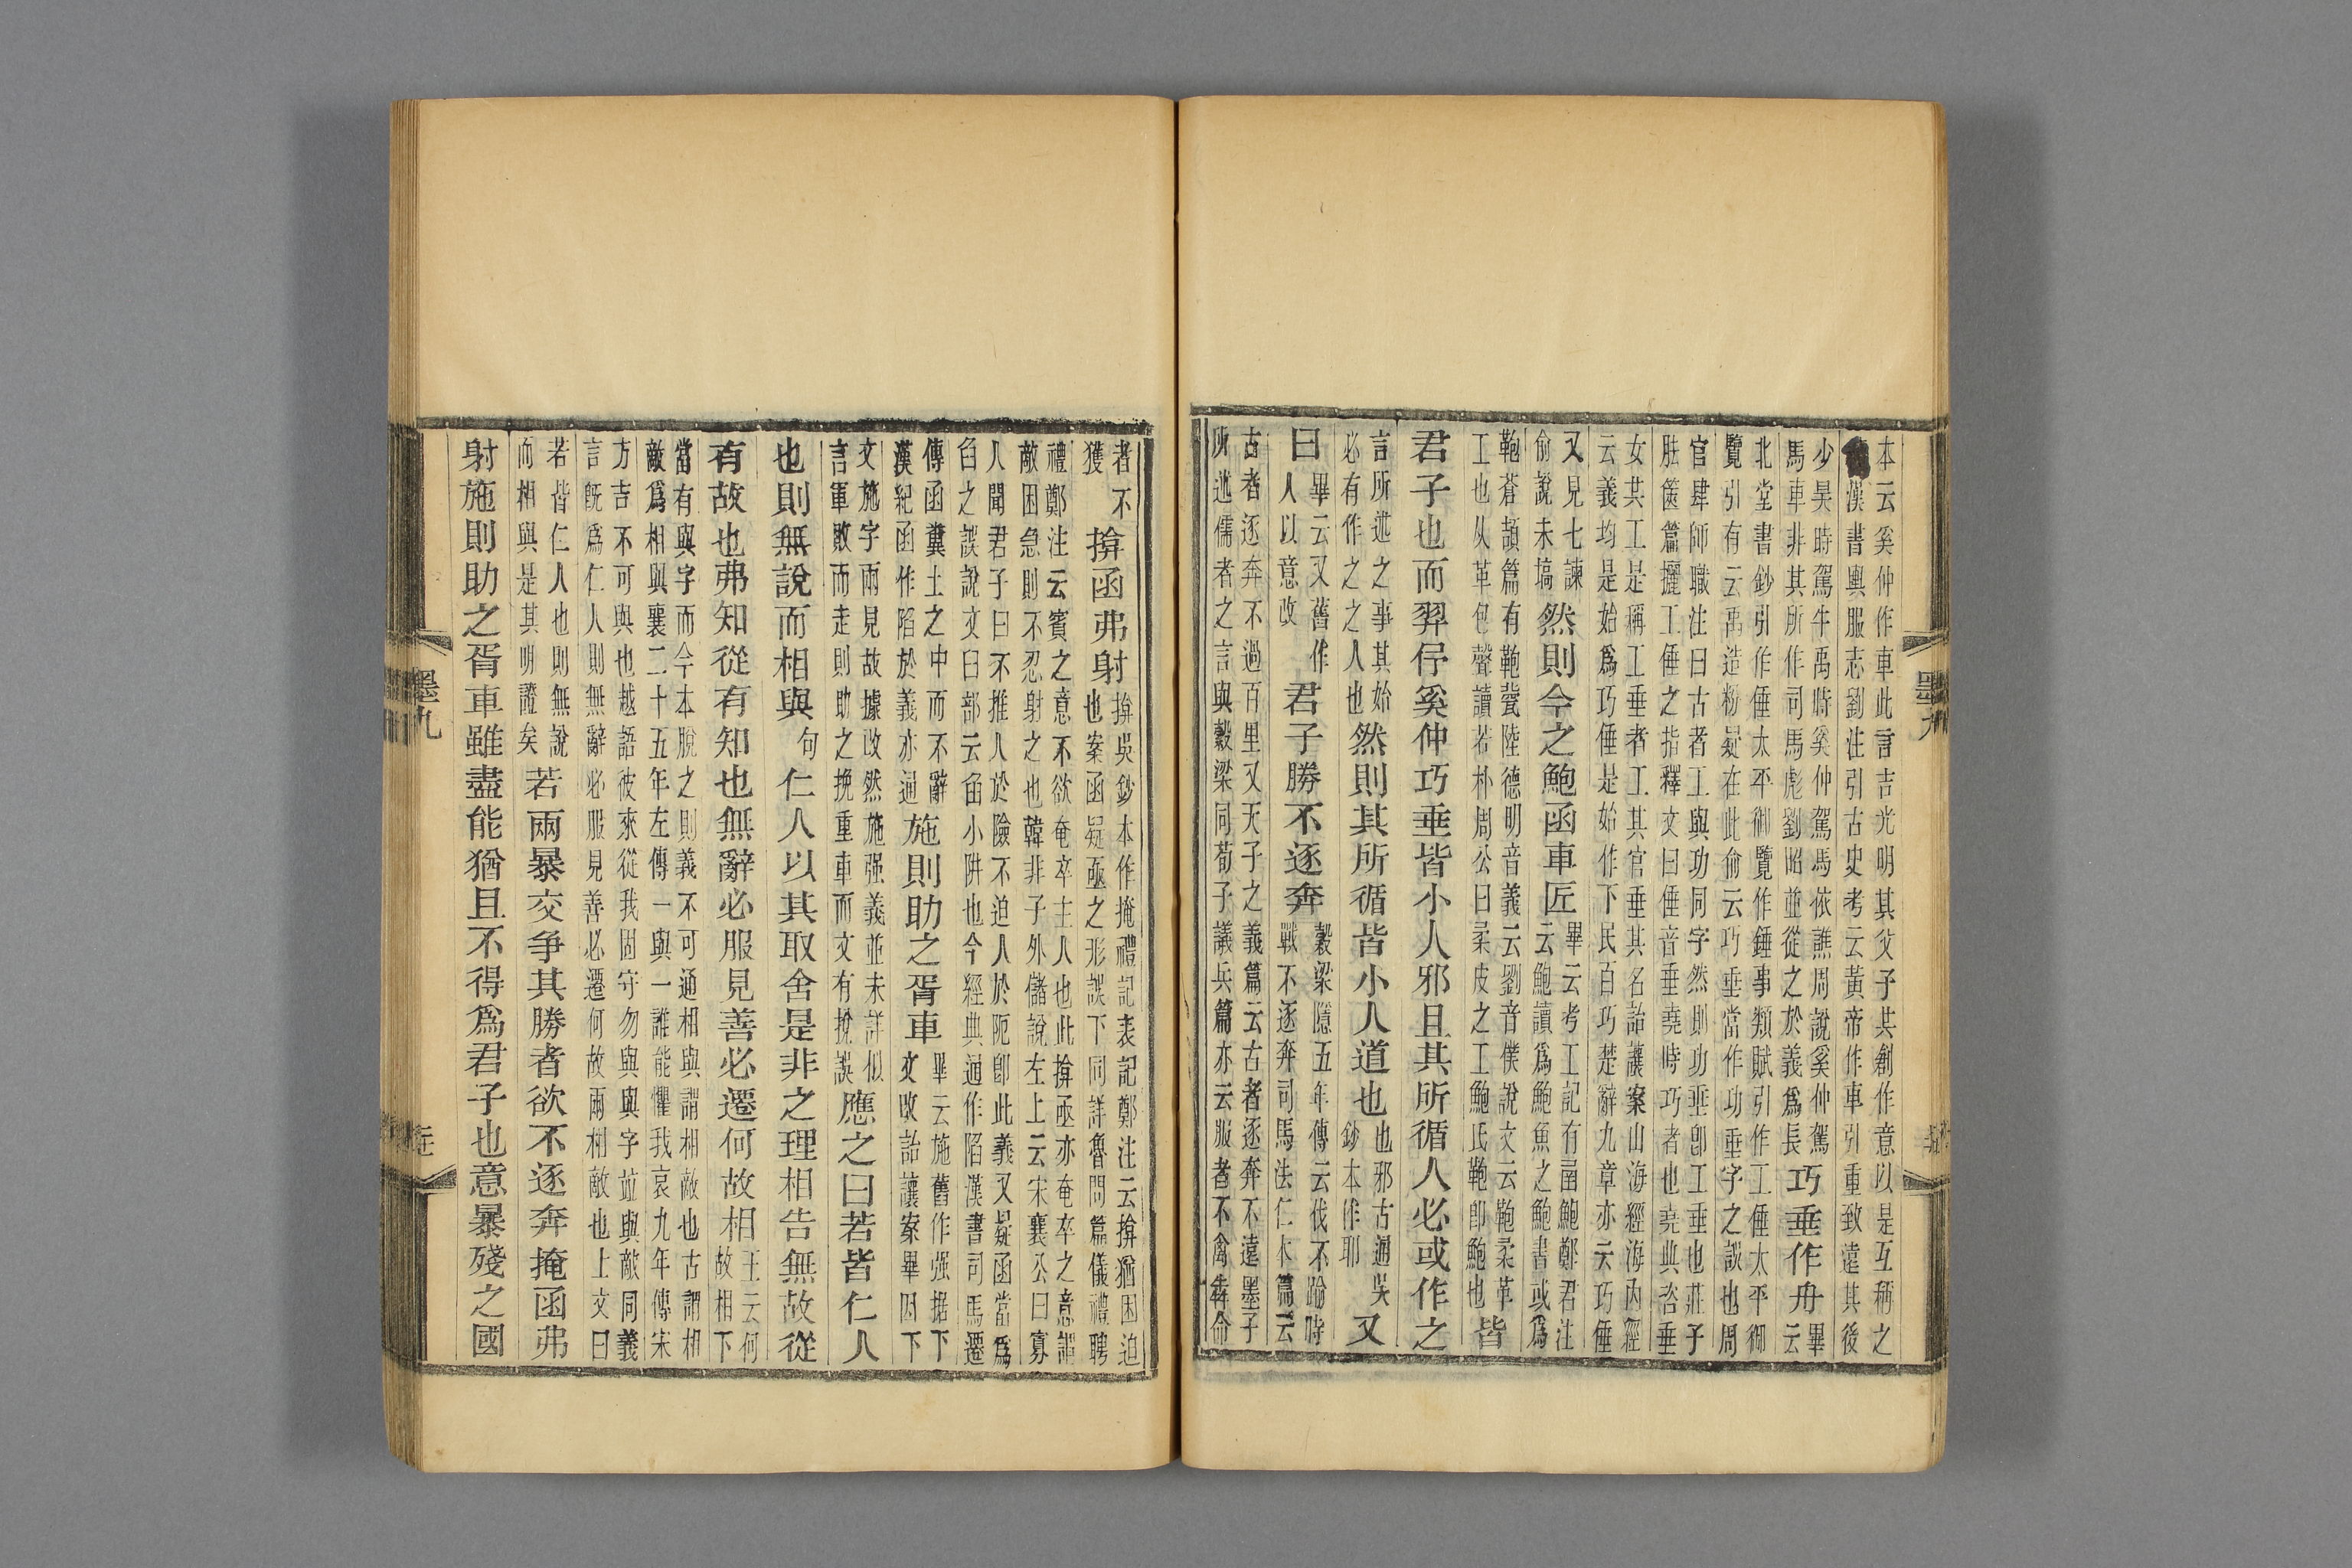 本云奚仲作車此言吉光明其父子其創作意以是互稱之
漢書輿服志劉注引古史考云黃帝作車引重致遠其後
少昊時駕牛禹時奚仲駕馬依譙周說奚仲駕
馬車非其所作司馬彪劉昭並從之於義爲長巧垂作舟畢云
北堂書鈔引作倕太平御覽作錘事類賦引作工倕太平御
覽引有云禹造粉疑在此俞云巧垂當作功垂字之誤也周
官肆師職注曰古者工與功同字然則功垂卽工垂也莊子
胠篋篇攦工倕之指釋文曰倕音垂堯時巧者也堯典咨垂
女其工是稱工垂者工其官垂其名詒讓案山海經海內經
云義均是始爲巧倕是始作下民百巧楚辭九章亦云巧倕
又見七諫
俞說未塙然則今之鮑函車匠畢云考工記有函鮑鄭君注
云鮑讀爲鮑魚之鮑書或爲
鞄蒼頡篇有鞄㼱陸德明音義云劉音僕說文云鞄柔革
工也从革包聲讀若朴周公曰柔皮之工鮑氏鞄卽鮑也皆
君子也而羿伃奚仲巧垂皆小人邪且其所循人必或作之
言所述之事其始
必有作之之人也然則其所循皆小人道也也邪古通吳
鈔本作耶又
曰畢云又舊作
人以意改君子勝不逐奔穀梁隱五年傳云伐不踰時
戰不逐奔司馬法仁本篇云
古者逐奔不過百里又天子之義篇云古者逐奔不遠墨子
所述儒者之言與穀梁同荀子議兵篇亦云服者不禽犇命
者不
獲揜函弗射揜吳鈔本作掩禮記表記鄭注云揜猶困迫
也案函疑亟之形誤下同詳魯問篇儀禮聘
禮鄭注云賓之意不欲奄卒主人也此揜亟亦奄卒之意謂
敵困急則不忍射之也韓非子外儲說左上云宋襄公曰寡
人聞君子曰不推人於險不迫人於阨卽此義又疑函當爲
臽之誤說文臼部云臽小阱也今經典通作陷漢書司馬遷
傳函糞土之中而不辭
漢紀函作陷於義亦通施則助之胥車畢云施舊作强据下
文改詒讓案畢因下
文施字兩見故據改然施强義並未詳似
言軍敗而走則助之挽重車而文有挩誤應之曰若皆仁人
也則無說而相與句仁人以其取舍是非之理相告無故從
有故也弗知從有知也無辭必服見善必遷何故相王云何
故相下
當有與字而今本脫之則義不可通相與謂相敵也古謂相
敵爲相與襄二十五年左傳一與一誰能懼我哀九年傳宋
方吉不可與也越語彼來從我固守勿與與字竝與敵同義
言旣爲仁人則無辭必服見善必遷何故兩相敵也上文曰
若皆仁人也則無說
而相與是其明證矣若兩暴交爭其勝者欲不逐奔掩函弗
射施則助之胥車雖盡能猶且不得爲君子也意暴殘之國
墨九
墨九